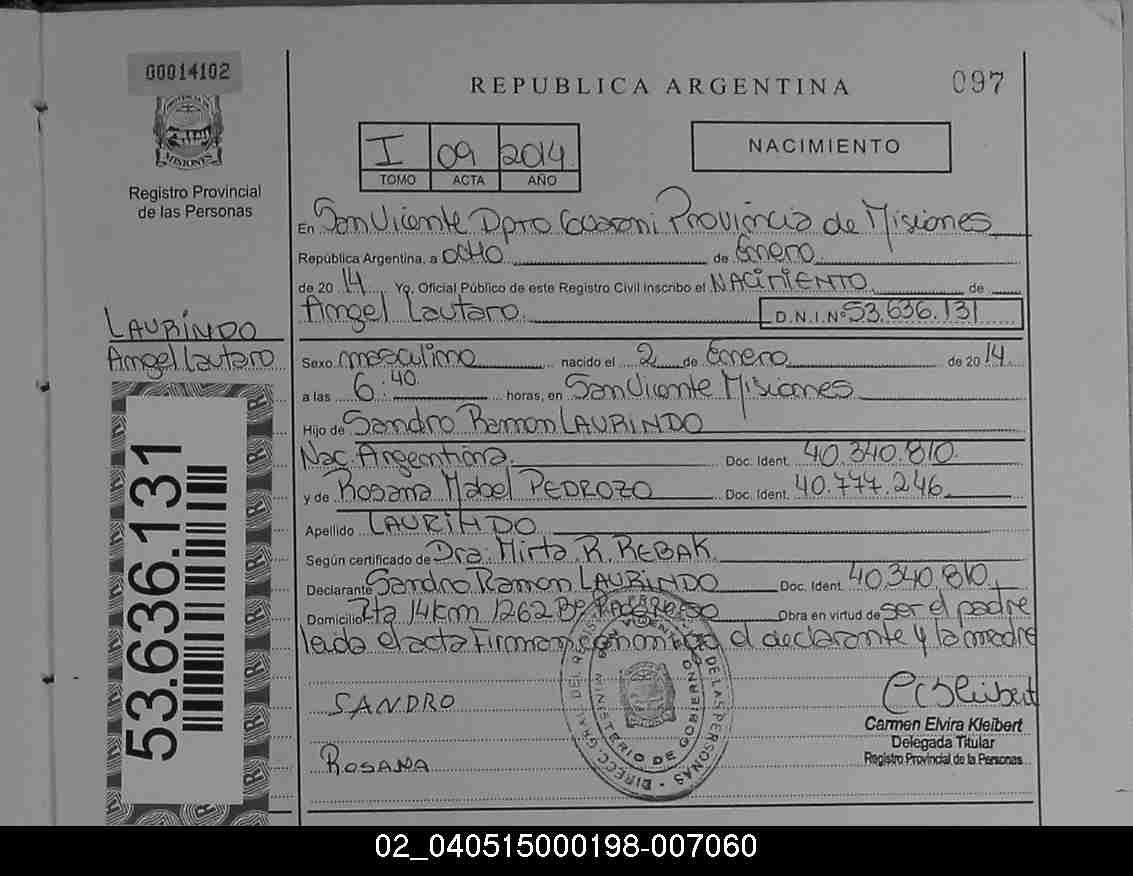 00014102
REPUBLICA ARGENTINA
097
MISIONES
Registro Provincial
de las Personas
I 09 2014
TOMO ACTA AÑO
NACIMIENTO
En San Vicente Dpto Guarani Provincia de Misiones
República Argentina, a OCHO de Enero
de 20 14 Yo, Oficial Público de este Registro Civil inscribo el NACIMIENTO de
Angel Lautaro D.N.I.Nº 53.636.131
LAURINDO
Angel Lautaro
Sexo masculino nacido el 2 de Enero de 20 14
a las 6:40 horas, en San Vicente Misiones
Hijo de Sandro Ramon LAURINDO
Nac. Argentina Doc. Ident. 40.340.810
y de Rosana Mabel PEDROZO Doc. Ident. 40.777.246
Apellido LAURINDO
Según certificado de Dra: Mirta R. REBAK
Declarante Sandro Ramon LAURINDO Doc. Ident. 40.340.810
Domicilio Rta 14 km 1262 Obra en virtud de ser el padre
leida el acta Firman conmigo el declarante y la madre
53.636.131
SANDRO
ROSANA
DIRECC. GRAL DEL REG. DE LAS PERSONAS
MINISTERIO DE GOBIERNO
Carmen Elvira Kleibert
Delegada Titular
Registro Provincial de la Personas
02_040515000198-007060